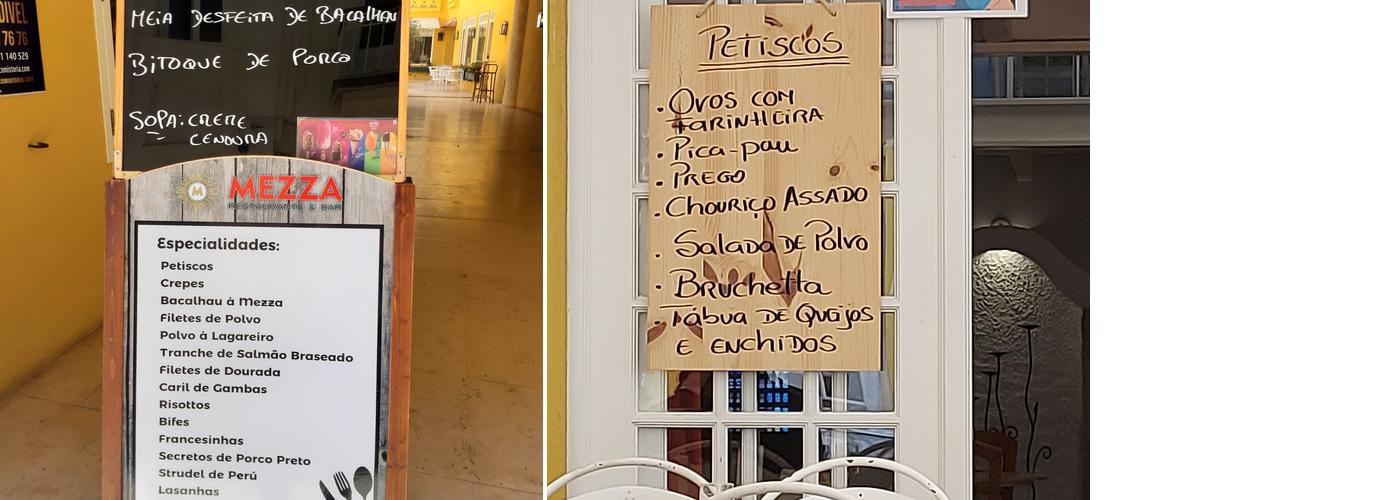 DIVEL
76 76
1 140 529
MEIA DESFEITA DE BACALHAU
BITOQUE DE PORCO
SOPA: CREME
CENOURA
M
MEZZA
RESTAURANTE & BAR
Especialidades:
Petiscos
Crepes
Bacalhau à Mezza
Filetes de Polvo
Polvo à Lagareiro
Tranche de Salmão Braseado
Filetes de Dourada
Caril de Gambas
Risottos
Bifes
Francesinhas
Secretos de Porco Preto
Strudel de Perú
Lasanhas
PETISCOS
· OVOS COM
FARINHEIRA
· Pica-pau
· PREGO
· CHOURIÇO ASSADO
· Salada DE Polvo
· Bruchetta
· Tábua DE Queijos
E ENCHIDOS